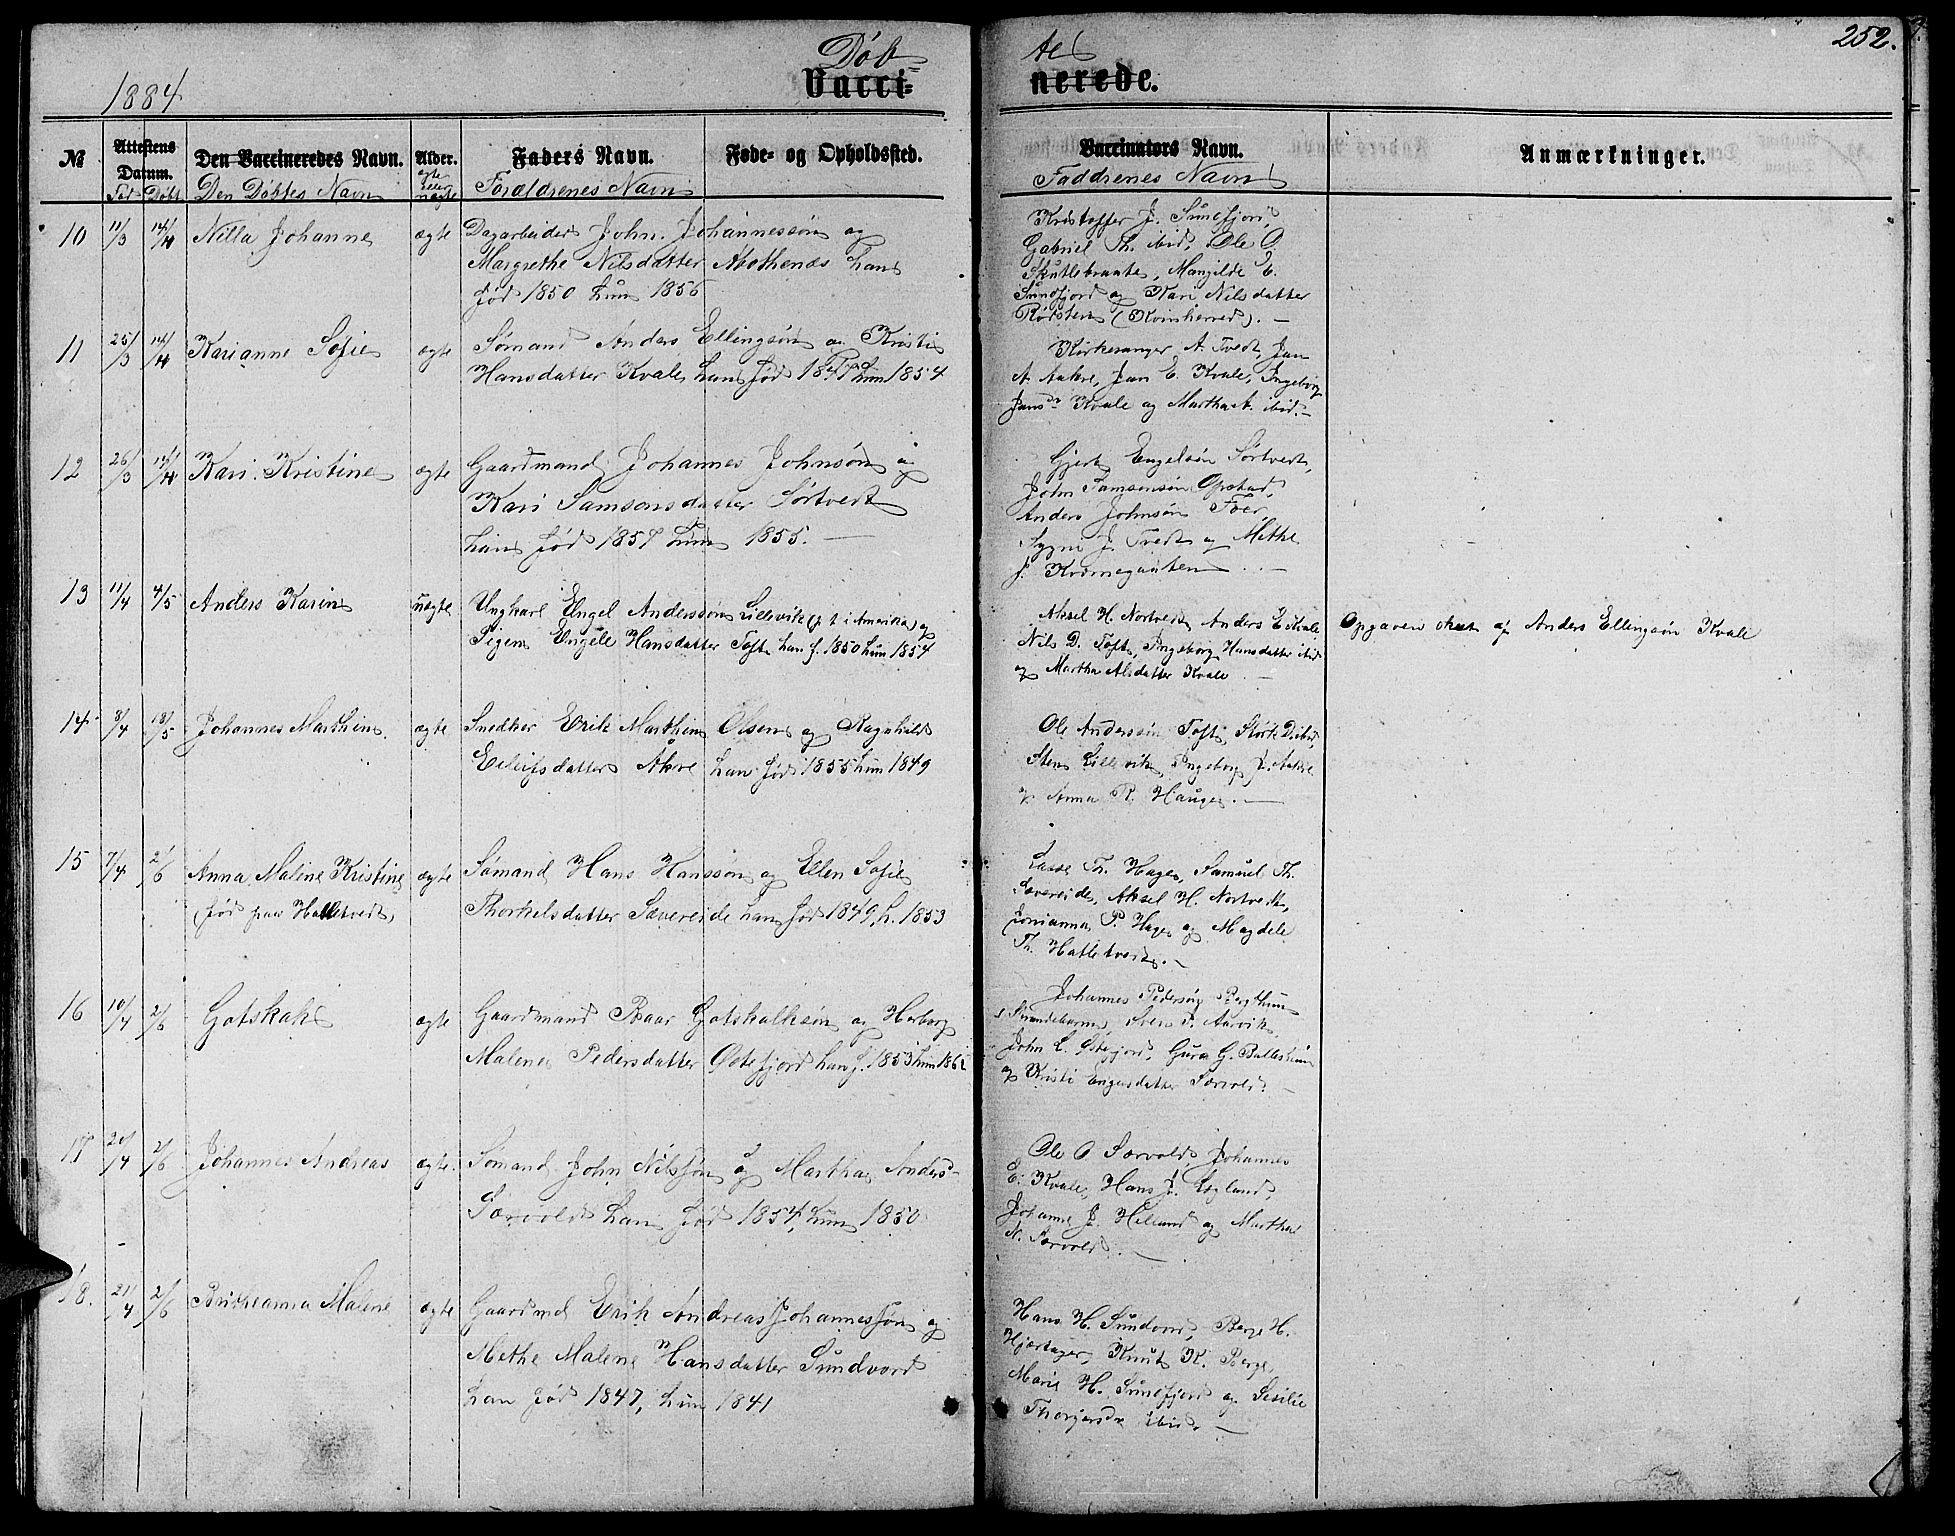 252.
1884
Døb
te
Vacci-
nerede.
№
Attestens Datum.
Den Vaccineredes Navn.
Alder.
Faders Navn.
Føde- og Opholdssted.
Vaccinators Navn.
Anmærkninger.
Fød
Døbt
Den Døbtes Navn
ægte eller uægte
Forældrenes Navn
Faddrenes Navn
10 11/3 14/4 Nilla Johanne ægte Dagarbeider John Johannessøn og
Margrethe Nilsdatter Apothenæs han
født 1850 hun 1856
Kristoffer J. Sunefjord,
Gabriel Th. ibid, Ole O.
Skutlebraate, Mangilde E.
Sunefjord og Kari Nilsdatter
(Kvinherred). —
11 25/3 14/4 Karianne Sofie ægte Sømand Anders Ellingsøn og Kristi
Hansdatter Kvale han født hun 1854
Kirkesanger A. Tvedt, Jan
A. Aakre, Jan E. Kvale, Ingeborg
Jansdr Kvale og Martha A. ibid. —
12 26/3 14/4 Kari Kristine ægte Gaardmand Johannes Johnsøn og
Kari Samsonsdatter Sørtvedt
han født 1857 hun 1855. —
Gjert Engelsøn Sørtvedt,
John Samsonsøn Opstad,
Anders Johnsøn
J. Tvedt og Methe
J.
13 11/4 4/5 Anders Karin uægte Ungkarl Engel Anderssøn Lillevik (p. t. i Amerika) og
Pigen Engele Hansdatter Toft han f. 1850 hun 1854
Aksel H. Nortvedt, Anders E. Kvale
Nils D. Toft, Ingeborg Hansdatter ibid
og Martha Alsdatter Kvale. —
Opgaven sket af Anders Ellingsøn Kvale
14 8/4 18/5 Johannes Marthin ægte Snedker Erik Marthin Olsen og Ragnhild
Eilifsdatter Akre han født 1855 hun 1849
Ole Anderssøn Toft,
Sten Lillevik, Ingeborg J. Aakre
og Anna R. Hauge. —
15 7/4 2/6 Anna Malene Kristine ægte Sømand Hans Hanssøn og Ellen Sofie
(født paa Hatletvedt)
Thorkelsdatter Sævereide han født 1849, h. 1853
Lasse Th. Hage, Samuel Th.
Sævereide, Aksel H. Nortvedt,
P. Hage og Magdele
Th. Hatletvedt. —
16 10/4 2/6 Gotskalk ægte Gaardmand Baar Gotskalksøn og Herborg
Malene Pedersdatter Østefjord han f. 1853 hun 186
Johannes Pedersøn
i Strandebarm, Sven P. Aarvik,
John L. Østefjord, Guro G.
og Kristi Sævold. —
17 20/4 2/6 Johannes Andreas ægte. Sømand John Nilssøn og Martha Anders-
Sævold han født 1854, hun 1850
Ole O. Sævold, Johannes
E. Kvale, Hans J. Legland,
Johanne J. Helland og Martha
N. Sævold. —
18. 21/4 2/6 Britheanna Malene ægte Gaardmd Erik Andreas Johannessøn og
Methe Malene Hansdatter Sundvord
han født 1847, hun 1841
Hans H. Sundvord, Berge H.
Hjortager, Knut K. Berge,
Marie H. Sunefjord og Sesilie
ibid. —